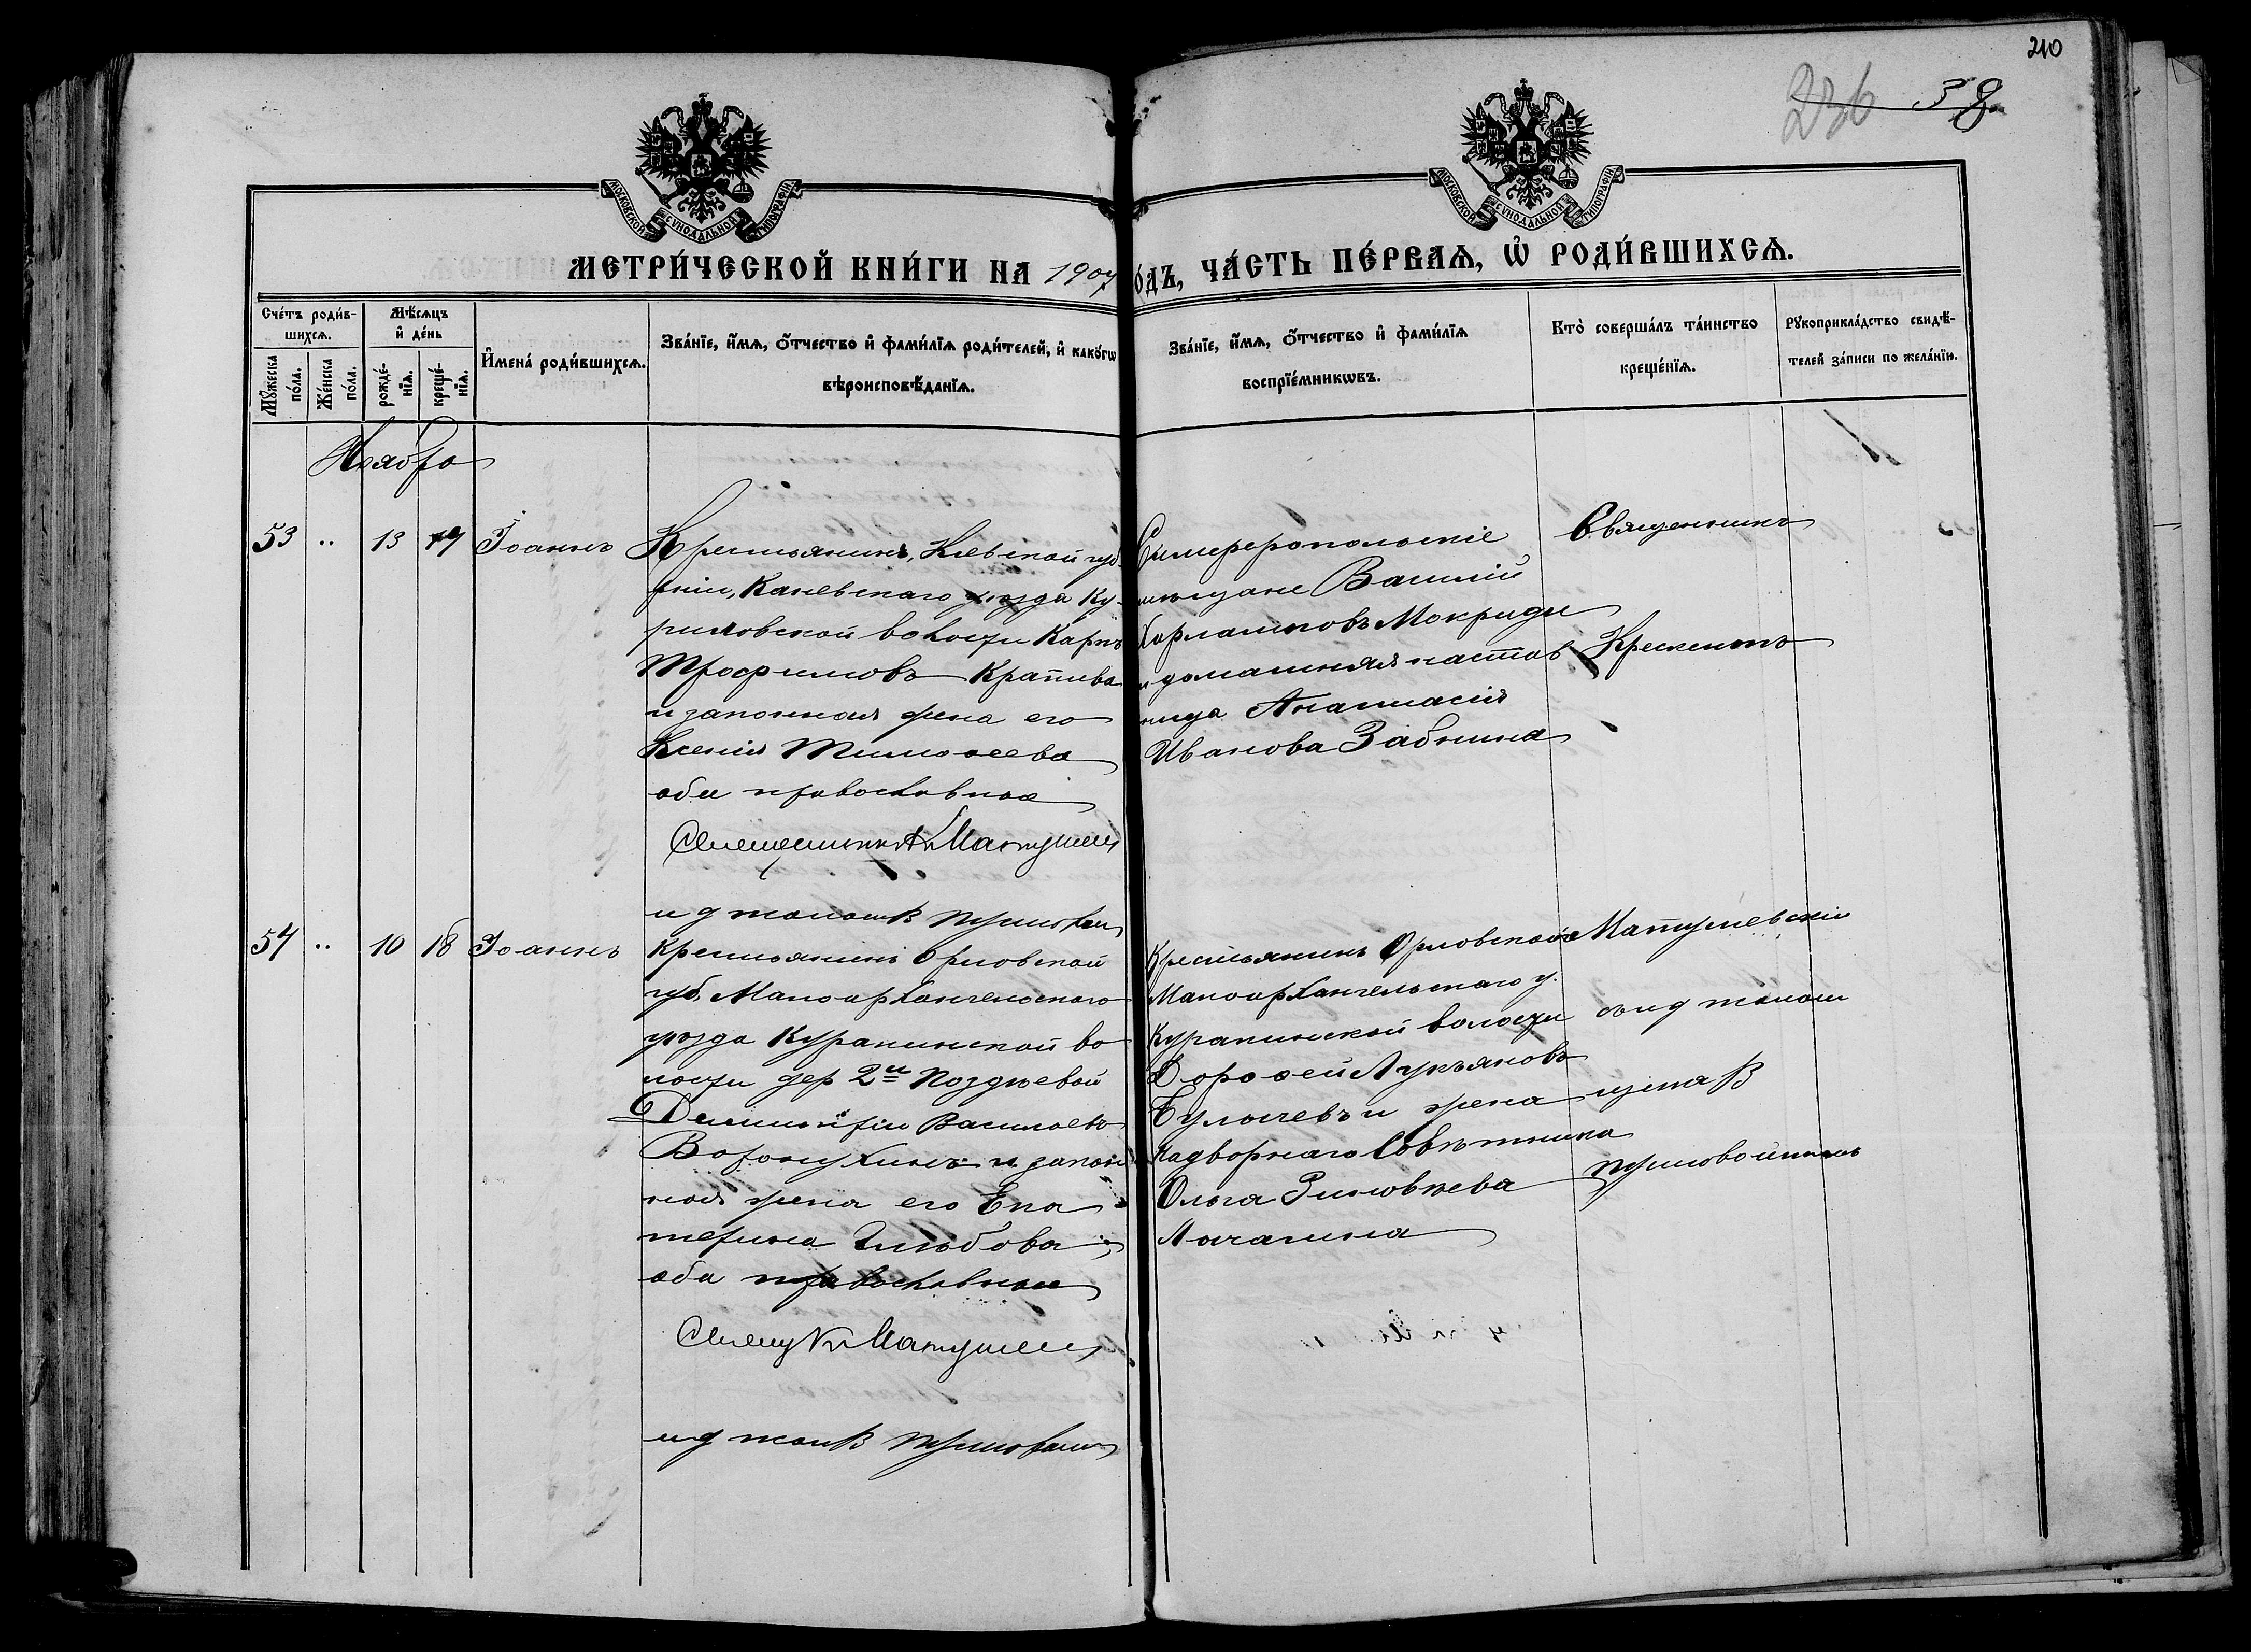 210
236 58
МОСКОВСКОЙ СУНОДАЛЬНОЙ ТИПОГРАФІИ
МОСКОВСКОЙ СУНОДАЛЬНОЙ ТИПОГРАФІИ
МЕТРИ́ЧЕСКОЙ КНИ́ГИ НА 1907 о́дъ, ЧА́СТЬ ПЕ́РВАѦ, Ѽ РОДИ́ВШИХСѦ.
Сче́тъ роди́в-
шихсѧ.
Мꙋ́жеска
по́ла.
Же́нска
по́ла.
Мѣ́сѧцъ
и҆ де́нь
рожде́-
нїѧ.
креще́-
нїѧ.
И҆мена̀ роди́вшихсѧ.
Зва́нїе, и҆́мѧ, ѻ҆́тчество и҆ фами́лїѧ роди́телей, и҆ како́гѡ
вѣроисповѣ́данїѧ.
Зва́нїе, и҆́мѧ, ѻ҆́тчество и҆ фами́лїѧ
воспрїе́мникѡвъ.
Кто̀ соверша́лъ та́инство
креще́нїѧ.
Рꙋкоприкла́дство свидѣ́-
телей за́писи по жела́нїю.
Ноября
53 .. 13 19 Іоаннъ
Крестьянинъ, Кіевской губ-
рніи, Каневскаго уѣзда Ку-
риловской волости Карпъ
Трофимовъ Кратива
и законная жена его
Ксенія Тимоѳеева
оба православные
Священникъ К Матушев
и д псаломщ В Трило
Симферопольскіе
мѣщане Василій
Харлампіовъ Мокриди
и домашняя настав
ница Анастасія
Иванова Забнина
Священникъ
Крескентъ
Матушевскій
съ и д псалом
щика В
54 .. 10 18 Іоаннъ
Крестьянинъ Орловской
губ, Малоархангельскаго
уѣзда Куракинской во
лости дер 2й Поздѣевой
Димитрій Васильевъ
Воронухинъ и закон
ная жена его Ека
терина Глѣбова,
оба православные
Свящ К Матушев
и д псал В Трило
Крестьянинъ Орловской
Малоархангельскаго у.
Куракинской волости
Дороѳей Лукьяновъ
Булычевъ и жена
надворнаго Совѣтника
Ольга Зиновьева
Лачагина